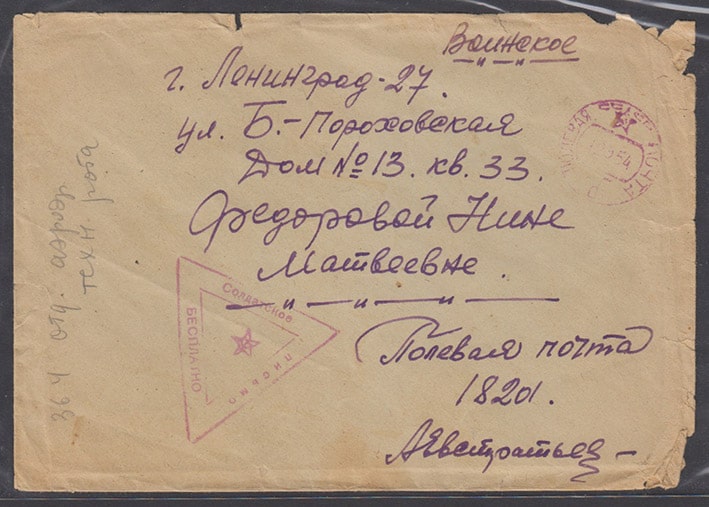 Воинское
г. Ленинград-27.
ул. Б.-Пороховская
Дом № 13. кв. 33.
Федоровой Нине
Матвеевне.
Полевая почта
1821.
АЕвстратьев
Солдатское
письмо
БЕСПЛАТНО
ПОЛЕВАЯ ПОЧТА
отд. аэродр
техн рота